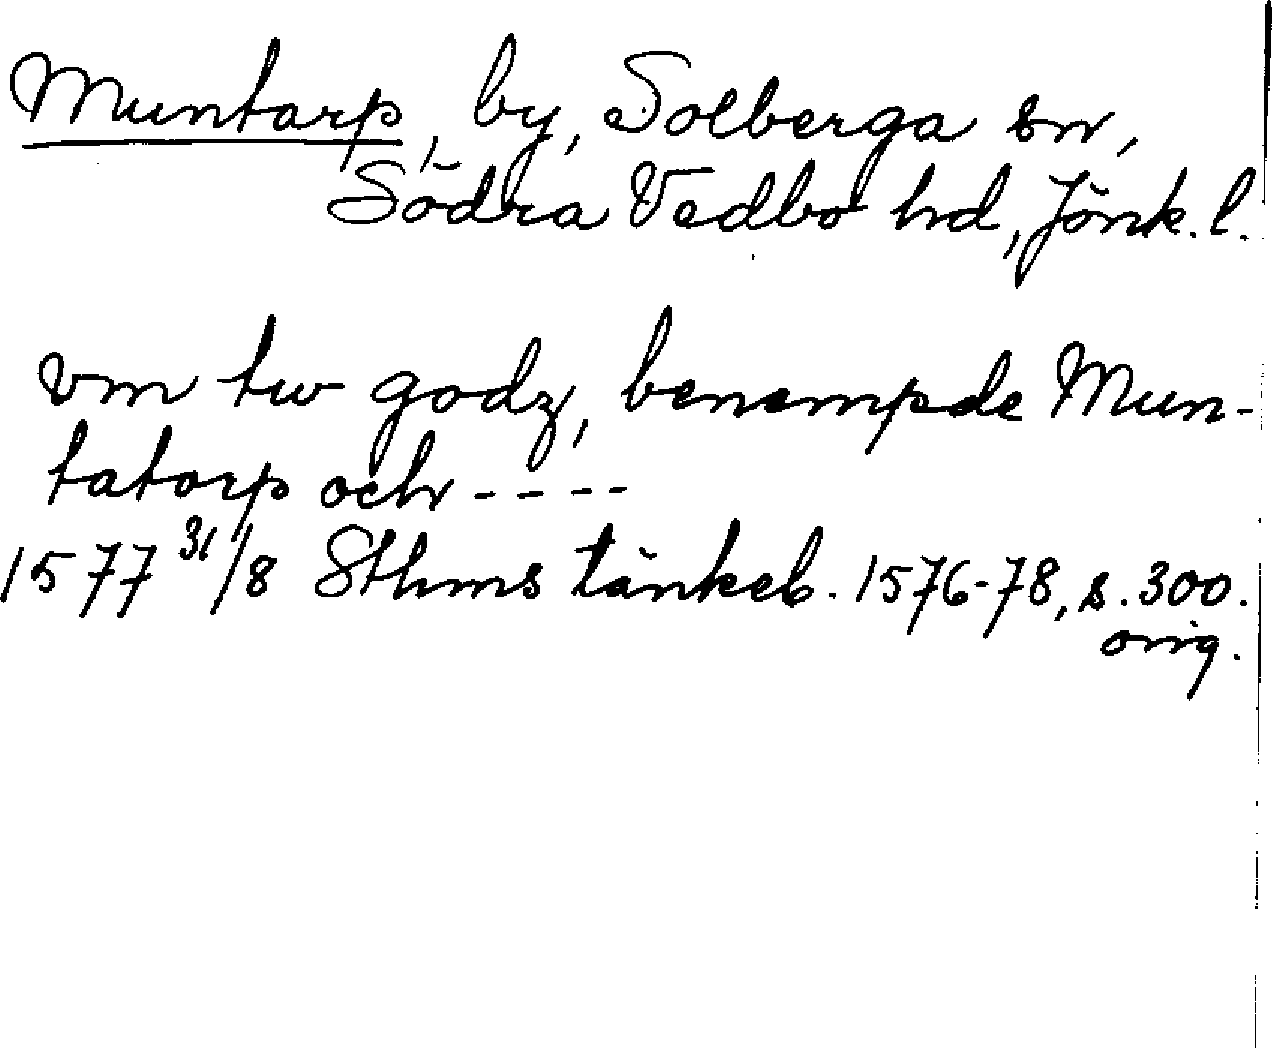 Muntarp, by, Solberga sn,
Södra Vedbo hd, Jönk. l.
vm tw godz, benempde Mun-
tatorp och ----
1577 31/8 Sthms tänkeb. 1576-78, s. 300.
orig.